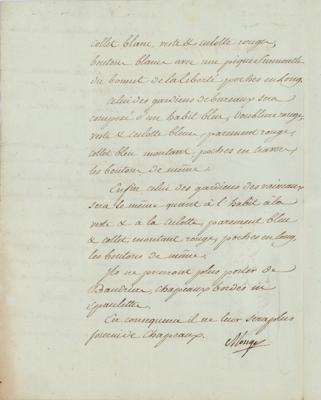 collet blanc, veste & culotte rouge,
boutons blancs avec une pique surmontée
du bonnet de la liberté, poches en Long.
Celui des gardiens de bureaux sera
composé d'un habit bleu, doublure rouge,
veste & culotte bleue, parement rouge,
collet bleu montant, poches en travers,
les boutons de même.
Enfin celui des gardiens des vaisseaux
sera le même quant à l'habit à la
veste & à la culotte, parement bleu
& collet montant rouge, poches en long,
les boutons de même.
Ils ne pourront plus porter de
Baudrier, chapeaux bordés ni
épaulettes.
En conséquence il ne leur sera plus
fourni de Chapeaux.
Monge